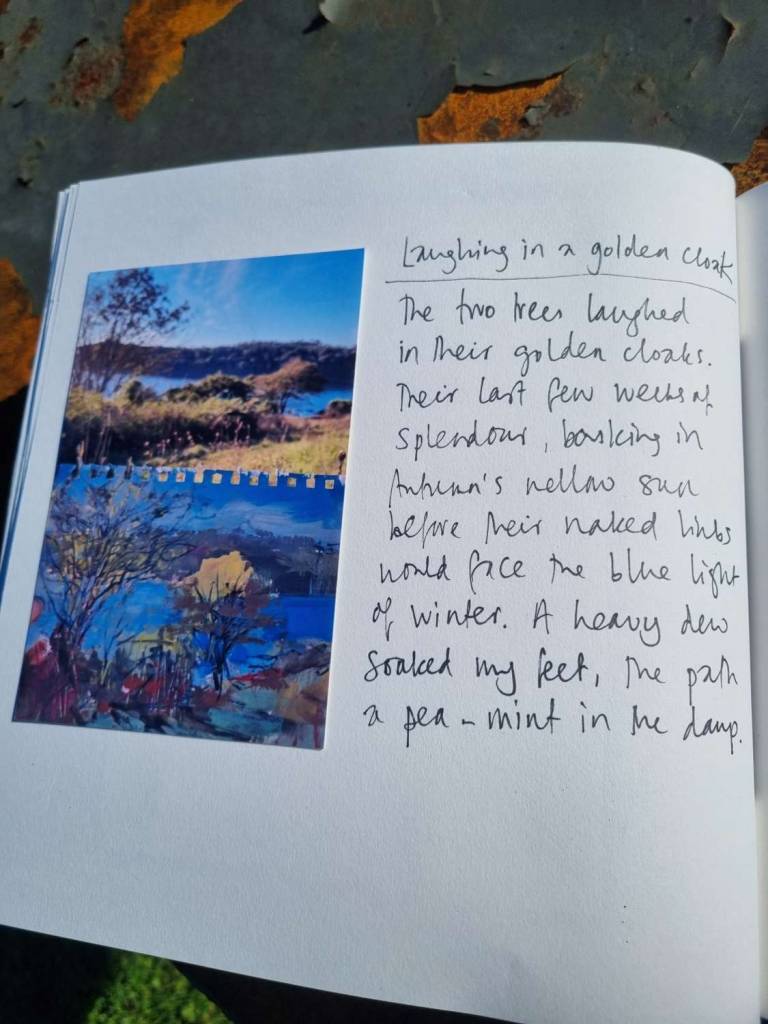 Laughing in a golden cloak
The two trees laughed
in their golden cloaks.
Their last few weeks of
splendour, basking in
Autumn's mellow sun
before their naked limbs
would face the blue light
of winter. A heavy dew
soaked my feet, the path
a pea-mint in the damp.